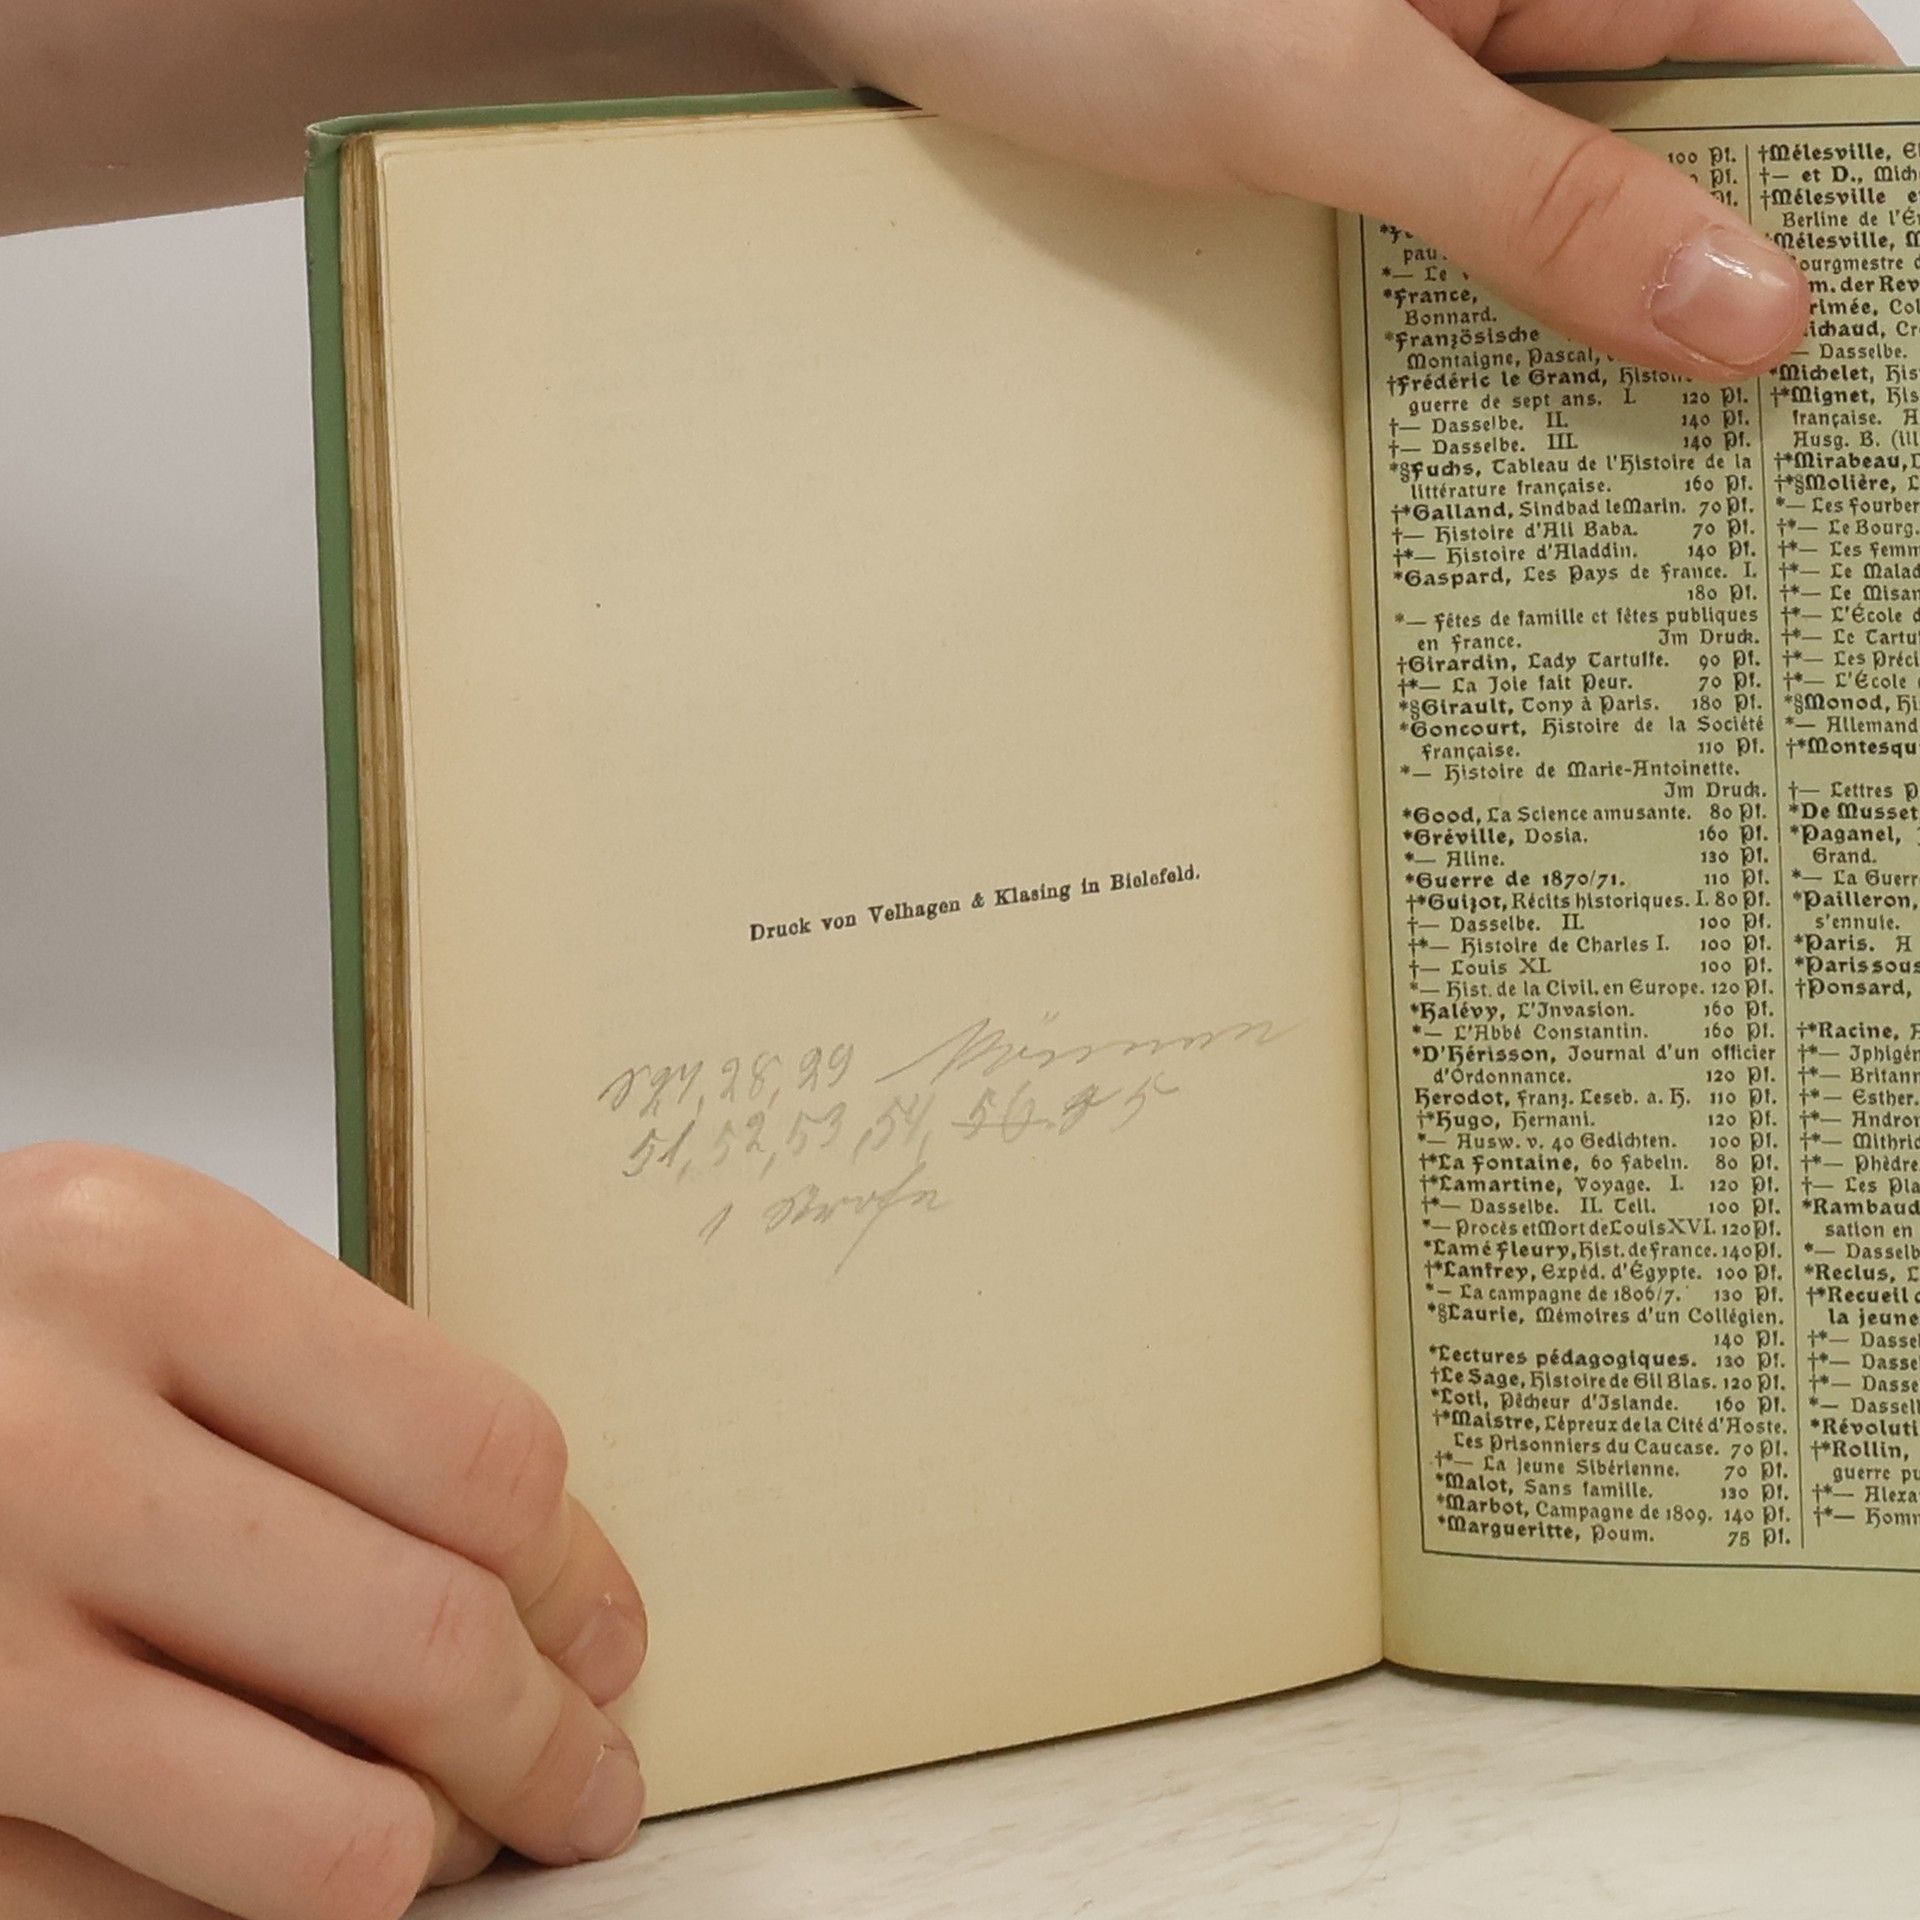 Druck von Velhagen & Klasing in Bielefeld.
27, 28, 29
51, 52, 53, 54, 56.
1
100 Pf.
Pf.
Pf.
pau
*— Le
*France,
Bonnard.
*Französische
Montaigne, Pascal,
†Frédéric le Grand,
guerre de sept ans. I. 120 Pf.
†— Dasselbe. II. 140 Pf.
†— Dasselbe. III. 140 Pf.
*§Fuchs, Tableau de l'Histoire de la
littérature française. 160 Pf.
†*Galland, Sindbad le Marin. 70 Pf.
†— Histoire d'Ali Baba. 70 Pf.
†*— Histoire d'Aladdin. 140 Pf.
*Gaspard, Les Pays de France. I.
180 Pf.
*— Fêtes de famille et fêtes publiques
en France. Im Druck.
†Girardin, Lady Tartuffe. 90 Pf.
†*— La Joie fait Peur. 70 Pf.
*§Girault, Tony à Paris. 180 Pf.
*Goncourt, Histoire de la Société
française. 110 Pf.
*— Histoire de Marie-Antoinette.
Im Druck.
*Good, La Science amusante. 80 Pf.
*Gréville, Dosia. 160 Pf.
*— Aline. 130 Pf.
*Guerre de 1870/71. 110 Pf.
†*Guizot, Récits historiques. I. 80 Pf.
†— Dasselbe. II. 100 Pf.
†*— Histoire de Charles I. 100 Pf.
†— Louis XI. 100 Pf.
*— Hist. de la Civil. en Europe. 120 Pf.
*Halévy, L'Invasion. 160 Pf.
*— L'Abbé Constantin. 160 Pf.
*D'Hérisson, Journal d'un officier
d'Ordonnance. 120 Pf.
Herodot, franz. Leseb. a. H. 110 Pf.
†*Hugo, Hernani. 120 Pf.
*— Ausw. v. 40 Gedichten. 100 Pf.
†*La Fontaine, 60 Fabeln. 80 Pf.
†*Lamartine, Voyage. I. 120 Pf.
†*— Dasselbe. II. Teil. 100 Pf.
*— Procès et Mort de Louis XVI. 120 Pf.
*Lamé Fleury, Hist. de France. 140 Pf.
†*Lanfrey, Expéd. d'Égypte. 100 Pf.
*— La campagne de 1806/7. 130 Pf.
*§Laurie, Mémoires d'un Collégien.
140 Pf.
*Lectures pédagogiques. 130 Pf.
†Le Sage, Histoire de Gil Blas. 120 Pf.
*Loti, Pêcheur d'Islande. 160 Pf.
†*Maistre, Lépreux de la Cité d'Aoste.
Les Prisonniers du Caucase. 70 Pf.
†*— La Jeune Sibérienne. 70 Pf.
*Malot, Sans famille. 130 Pf.
*Marbot, Campagne de 1809. 140 Pf.
*Margueritte, Poum. 75 Pf.
†Mélesville,
†— et D.,
†Mélesville
Berline de
Mélesville,
Bourgmestre
der
Dasselbe.
*Michelet,
†*Mignet,
française.
Ausg. B.
†*Mirabeau,
†*§Molière,
*— Les
†*— Le Bourg.
†*— Les
†*— Le
†*— Le
†*— L'École
†*— Le
†*— Les
†*— L'École
*§Monod,
*—
†— Lettres
*De Musset
*Paganel,
Grand.
*— La
*Pailleron,
s'ennuie.
*Paris. A
†Ponsard,
†*Racine,
†*—
†*—
†*— Esther.
†*—
†*—
†*—
†— Les
*Rambaud
sation en
*—
*Reclus,
†*Recueil
la jeune
†*—
†*—
†*—
*—
†*Rollin,
guerre
†*—
†*—